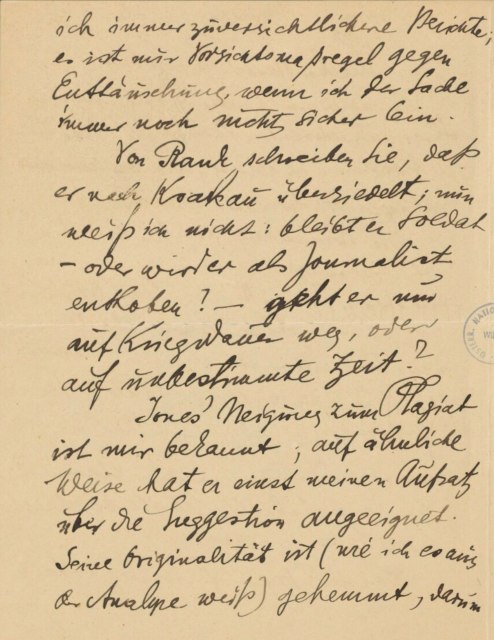 ich immer zuversichtlichere Berichte;
es ist nur Vorsichtsmaßregel gegen
Enttäuschung, wenn ich der Sache
immer noch nicht sicher bin.
Von Rank schreiben Sie, daß
er nach Krakau übersiedelt; nun
weiß ich nicht: bleibt er Soldat
– oder wird er als Journalist
enthoben? – geht er nur
auf Kriegsdauer weg, oder
auf unbestimmte Zeit?
Jones' Neigung zum Plagiat
ist mir bekannt; auf ähnliche
Weise hat er einst meinen Aufsatz
über die Suggestion angeeignet.
Seine Originalität ist (wie ich es aus
der Analyse weiß) gehemmt, darum